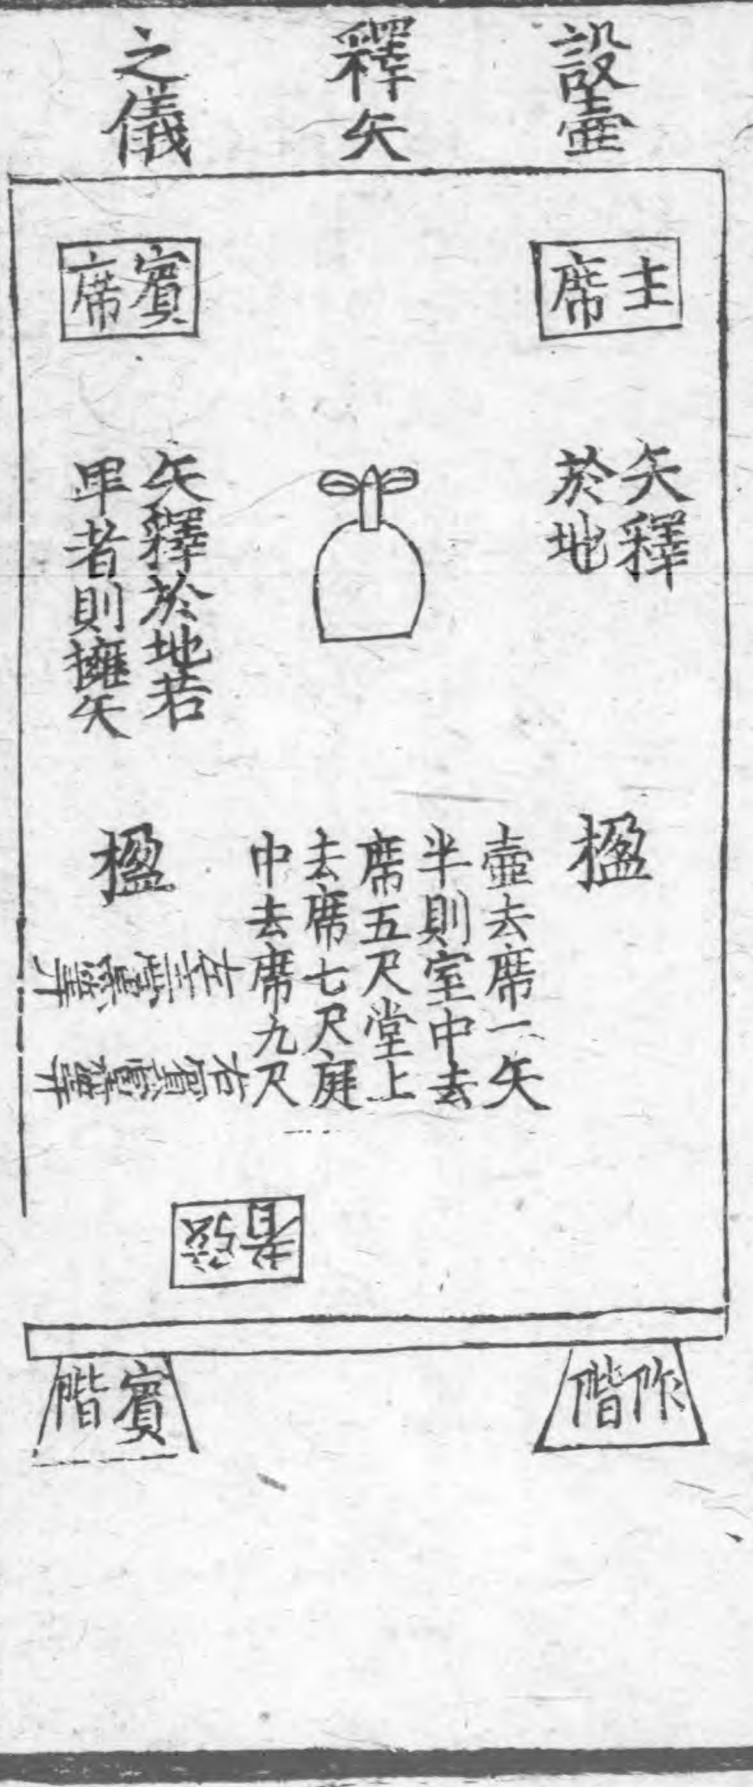 設壺
釋矢
之儀
主席
賓席
矢釋
於地
矢釋於地若
卑者則擁矢
楹
壺去席一矢
半則室中去
席五尺堂上
去席七尺庭
中去席九尺
楹
左主黨筭
右賓黨筭
弦者
阼階
賓階